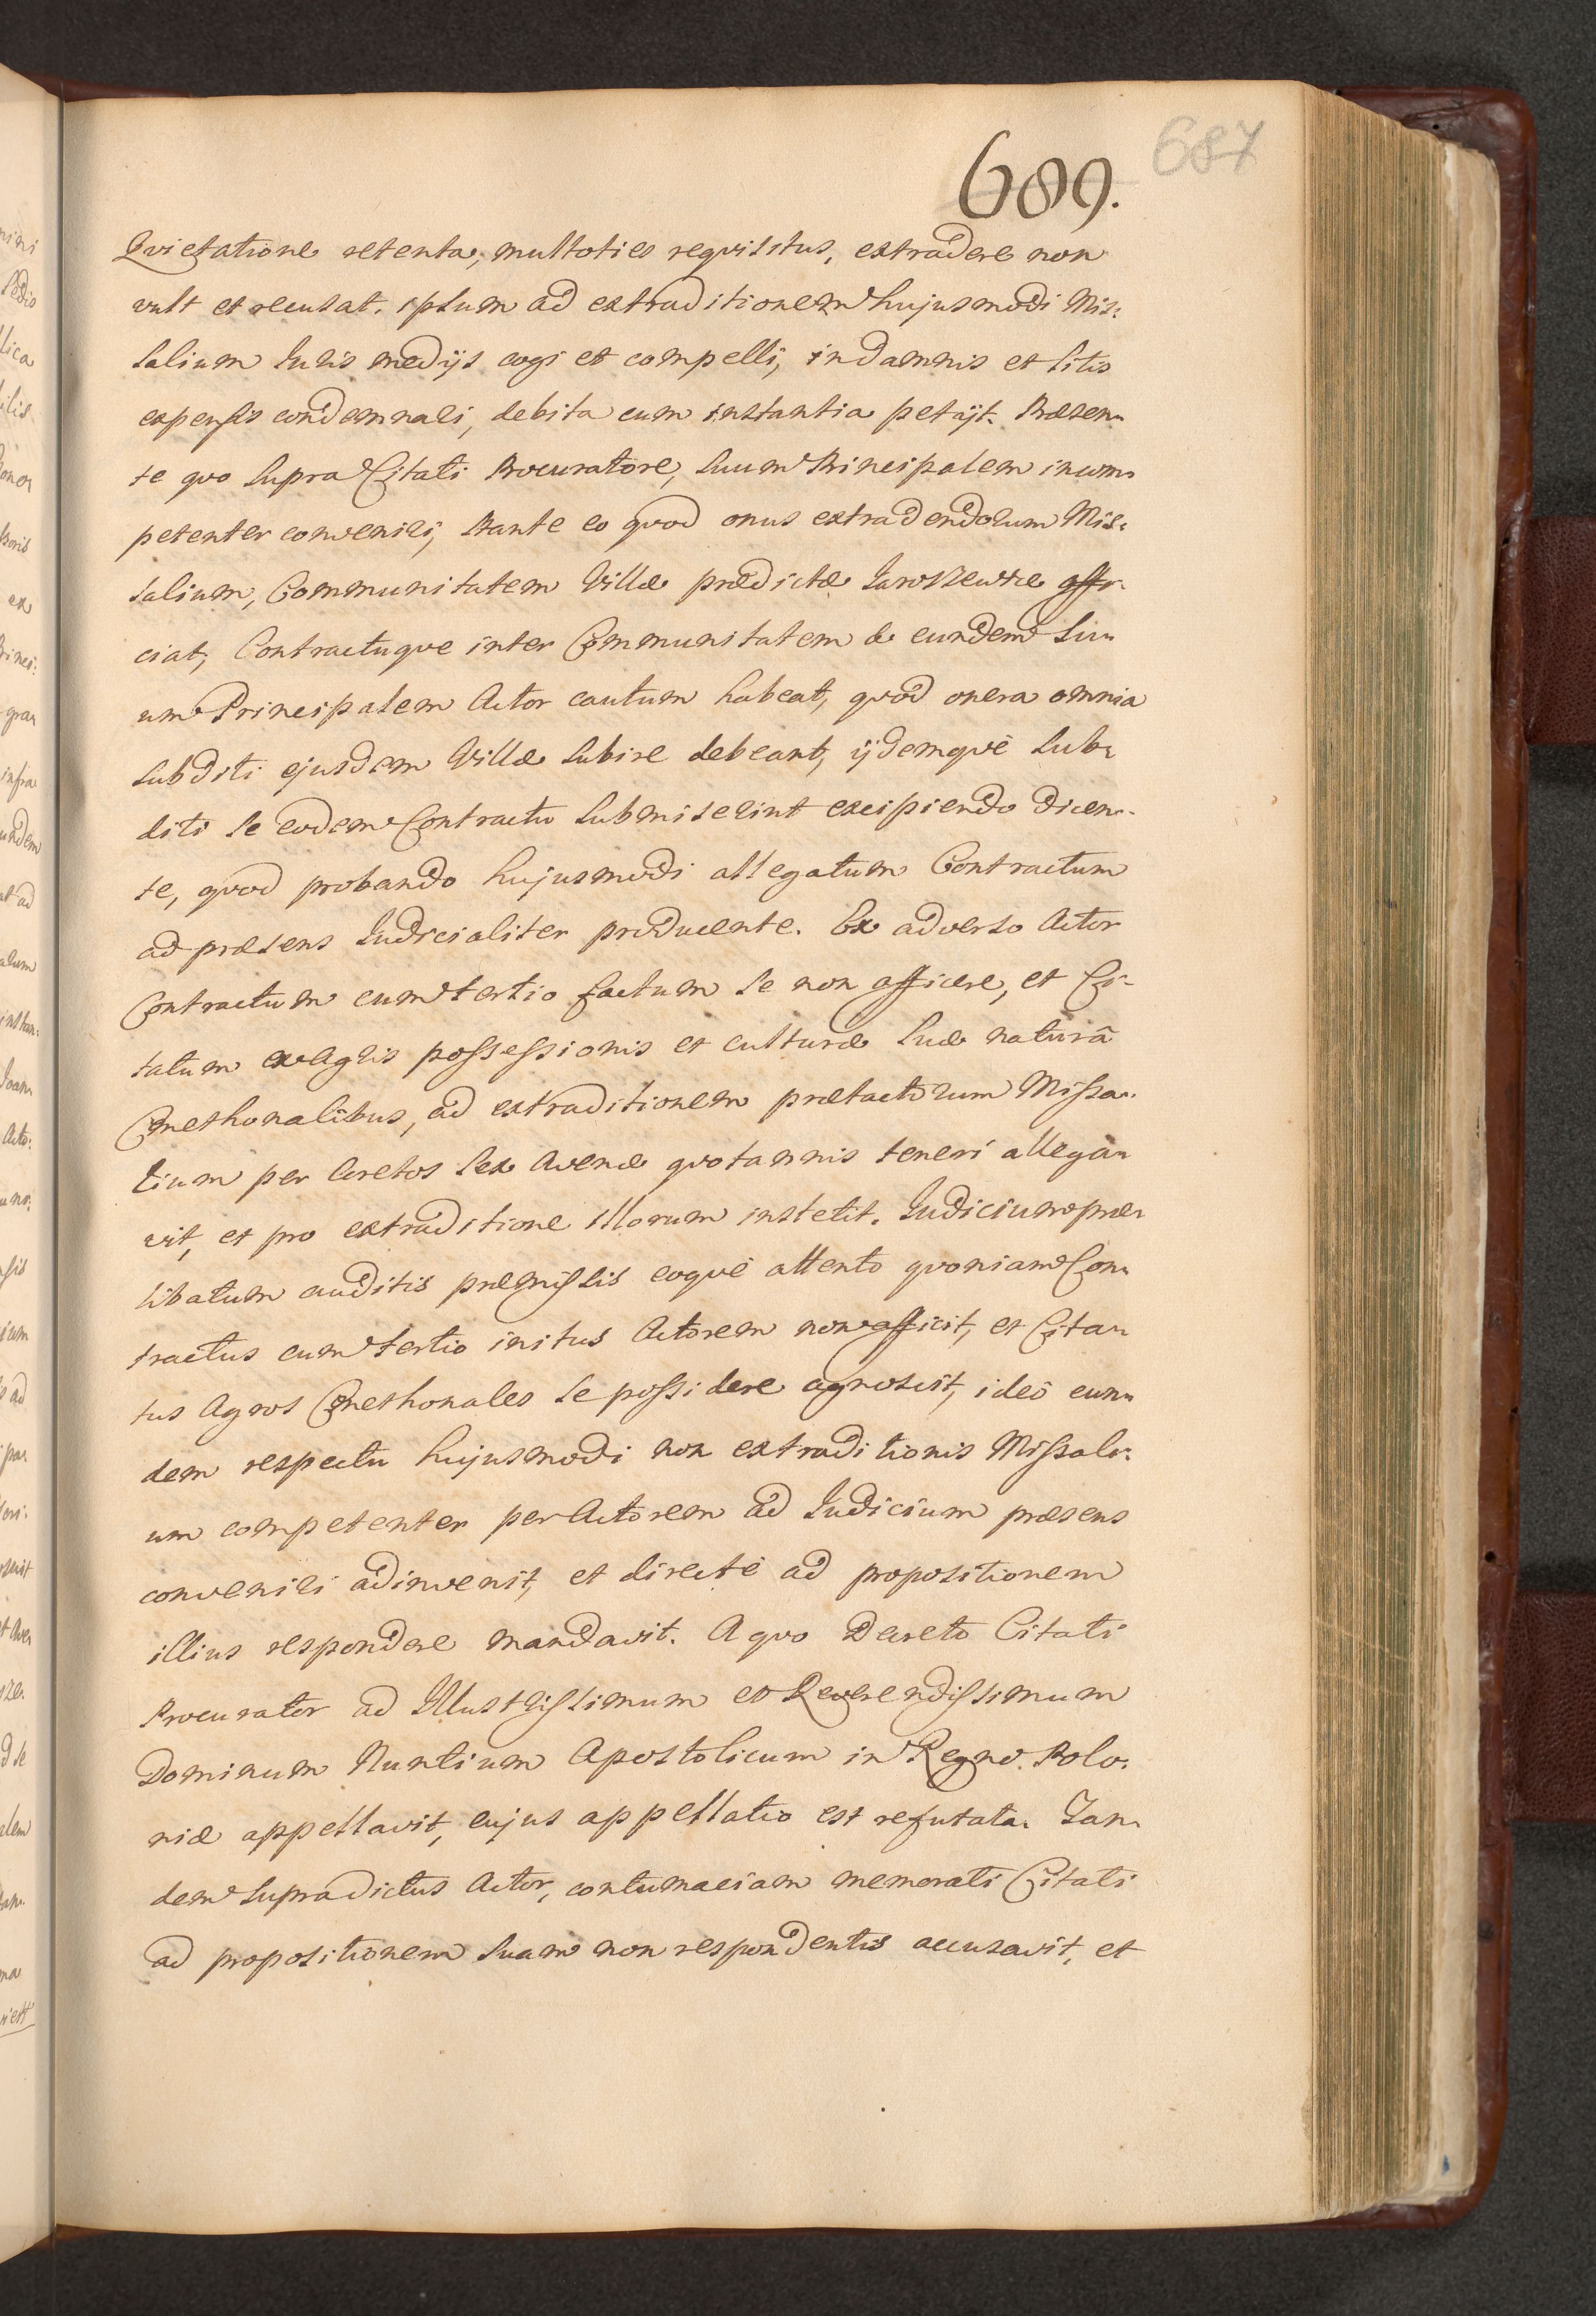 687
689.
Qvietatione retenta, multoties reqvisitus, extradere non
vult et recusat. ipsum ad extraditionem hujusmodi Mis:
salium Juris medijs cogi et compelli, in damnis et litis
expensis condemnari, debita cum instantia petijt. Præsen-
te qvo supra Citati Procuratore, suum Principalem incom-
petenter conveniri, stante eo qvod onus extradendorum Mis:
salium, Communitatem Villæ prædictæ Jaroszewice affi-
ciat, Contractuqve inter Communitatem & eundem Su-
um Principalem Actor cautum habeat, qvod onera omnia
subditi ejusdem Villæ subire debeant, ijdemqve Sub-
diti se eodem Contractu submiserint excipiendo dicen-
te, qvod probando hujusmodi allegatum Contractum
ad præsens Judicialiter producente. Ex adverso Actor
Contractum cum tertio factum se non afficere, et Ci-
tatum ex Agris possessionis et culturæ suæ naturâ
Cmethonalibus, ad extraditionem prætactorum Missa-
lium per Coretos sex Avenæ qvotannis teneri allega-
vit, et pro extraditione illorum institit. Judicium præ-
libatum auditis præmissis eoqve attento qvoniam Con-
tractus cum tertio initus Actorem non afficit, et Cita-
tus Agros Cmethonales se possidere agnoscit, ideò eun-
dem respectu hujusmodi non extraditionis Missali-
um competenter per Actorem ad Judicium præsens
conveniri adinvenit, et directè ad propositionem
illius respondere mandavit. A qvo Decreto Citati
Procurator ad Illustrissimum et Reverendissimum
Dominum Nuntium Apostolicum in Regno Polo-
niæ appellavit, cujus appellatio est refutata. Tan-
dem supradictus Actor, contumaciam memorati Citati
ad propositionem suam non respondentis accusavit, et